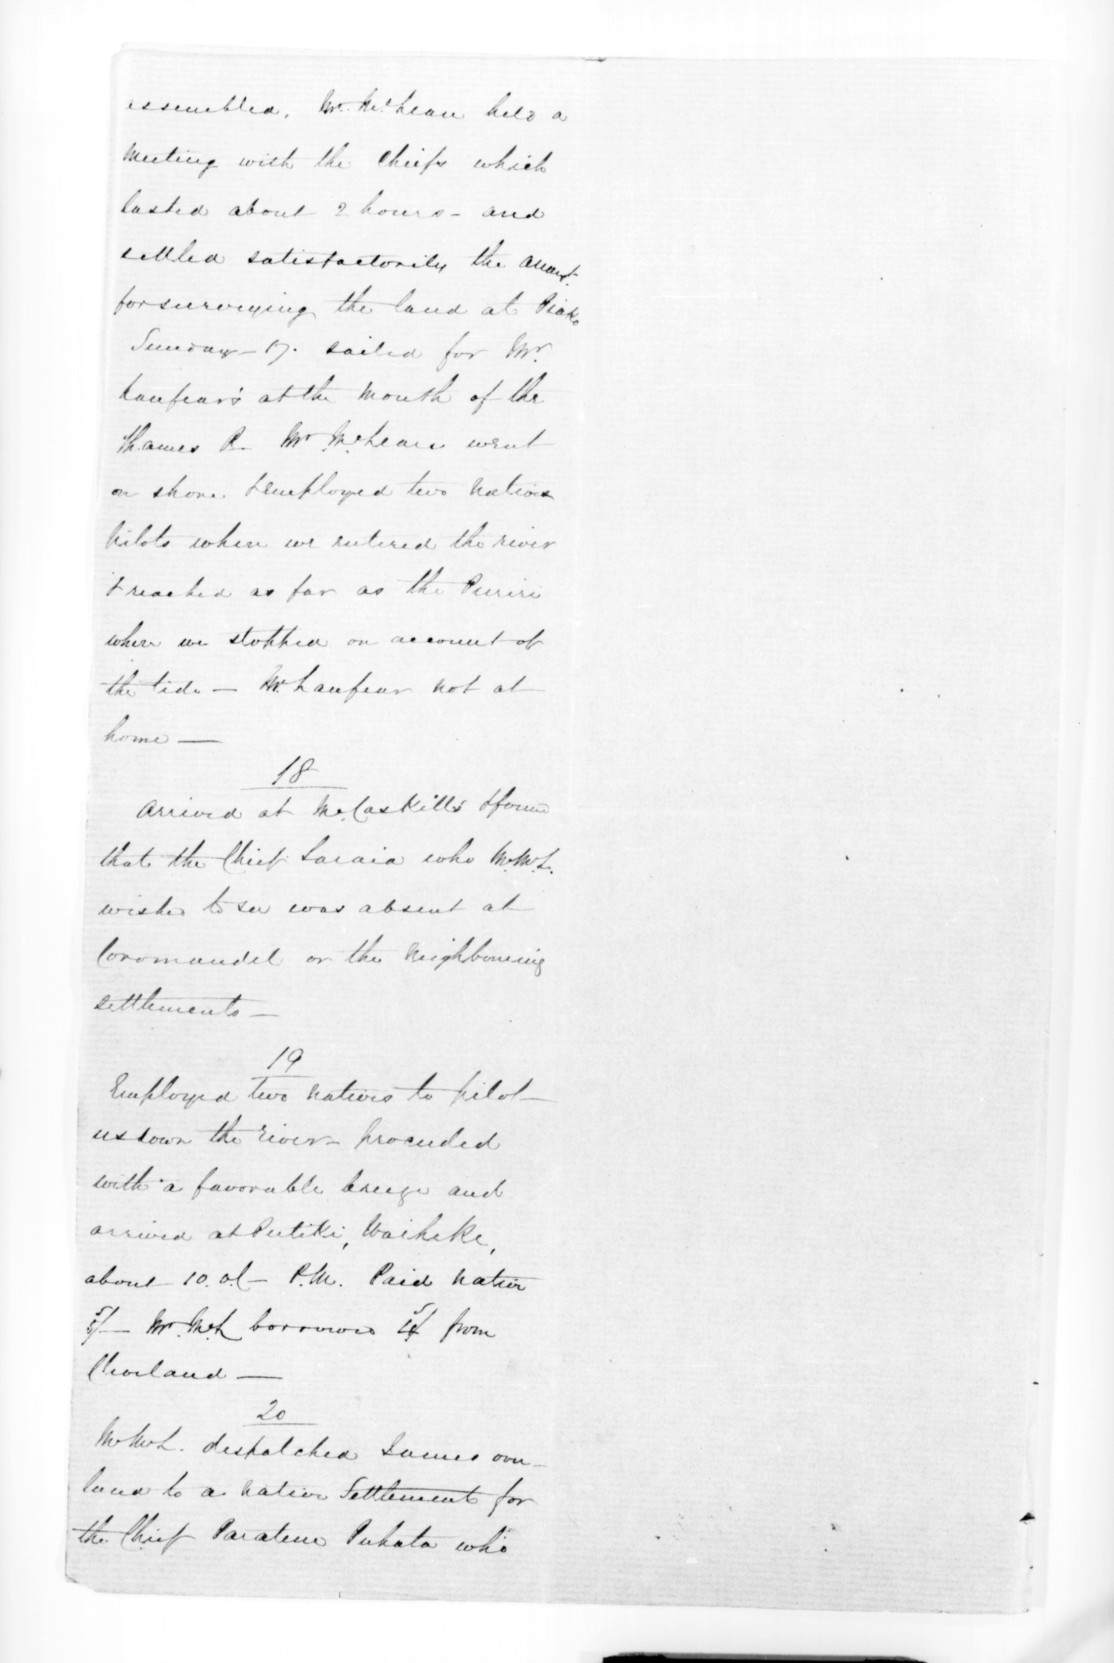 assembled. Mr. McLean held a
meeting with the Chiefs which
lasted about 2 hours - and
settled satisfactorily the amount
for surveying the land at Piako
Sunday - 17. sailed for Mr.
Lanfear's at the mouth of the
Thames R. Mr McLean went
on shore & employed two native
pilots when we entered the river
& reached as far as the Puriri
where we stopped on account of
the tide — Mr. Lanfear not at
home —
18
Arrived at McCaskill's & found
that the Chief Taraia who Mr. McL.
wished to see was absent at
Coromandel or the neighbouring
settlements —
19
Employed two natives to pilot
us down the river - proceeded
with a favorable breeze and
arrived at Putiki, Waiheke,
about 10. o.C - P.M. Paid native
5/- Mr. McL borrowed 5/ from
Cleveland —
20
Mr McL. dispatched James over
land to a native Settlement for
the Chief Paratene Puhata who